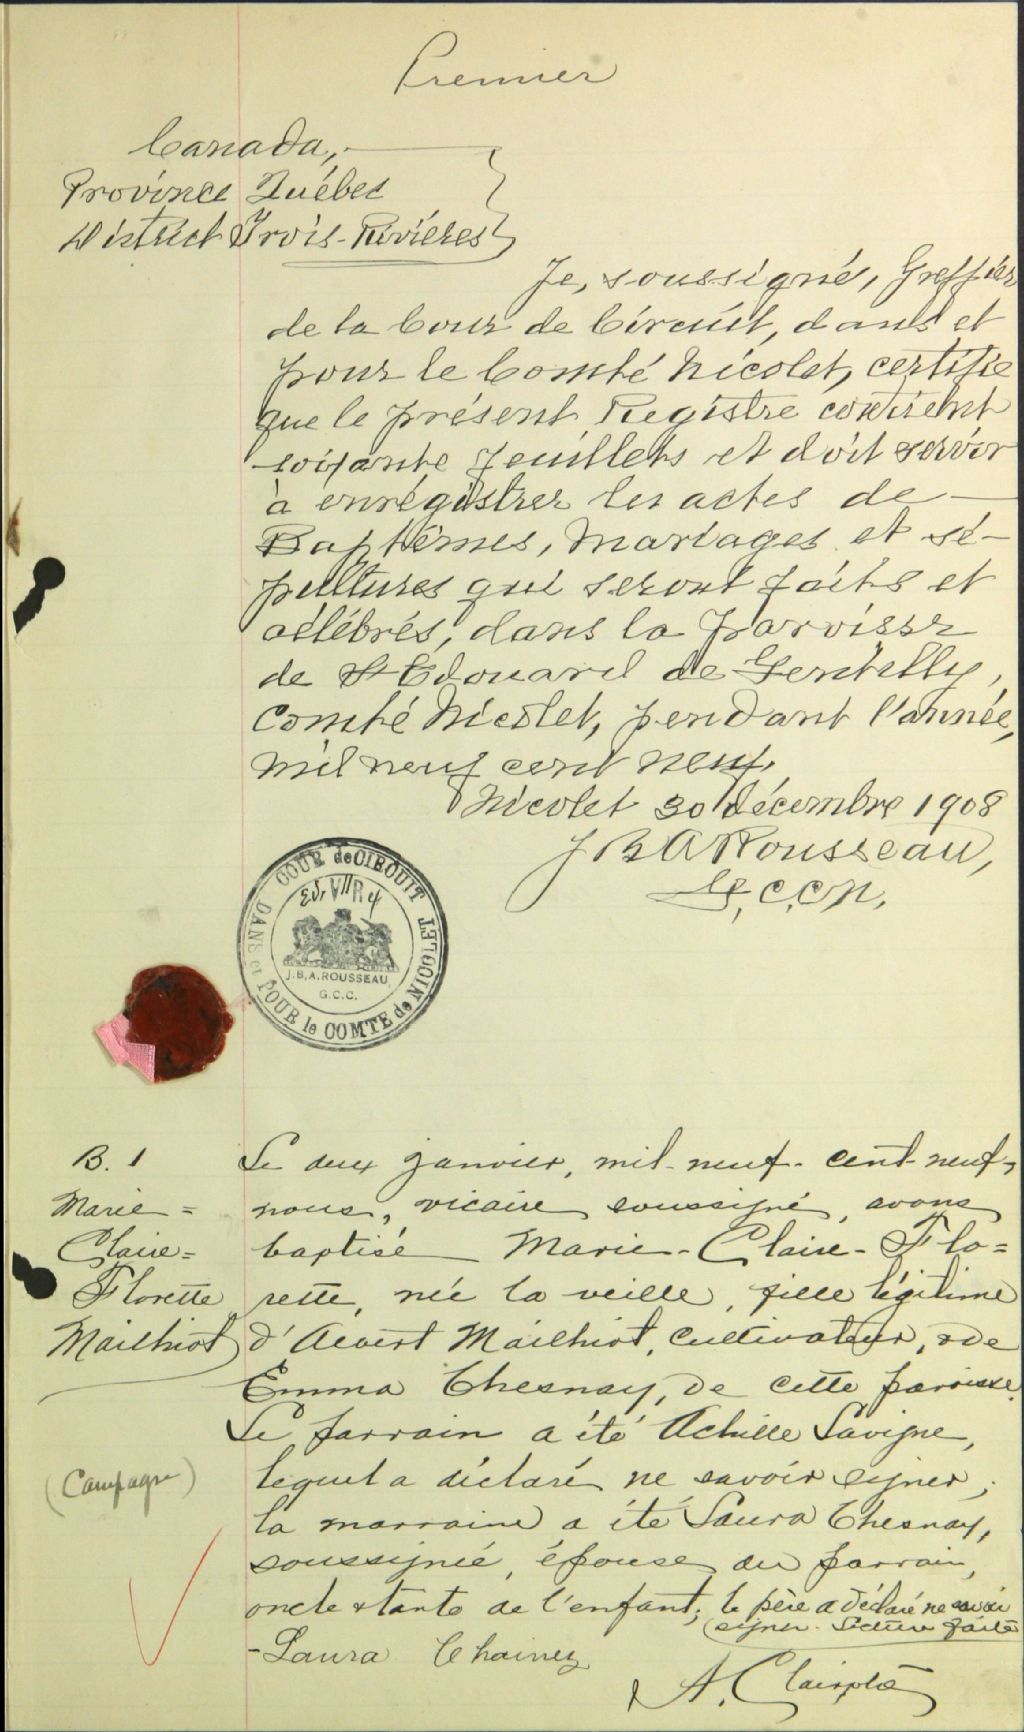 Premier
Canada,
Province Québec
District Trois-Rivières
Je, soussigné, Greffier
de la Cour de Circuit, dans et
pour le Comté Nicolet, certifie
que le présent Registre contient
soixante feuillets et doit servir
à enrégistrer les actes de
Baptêmes, Mariages et sé-
pultures qui seront faits et
célébrés, dans la paroisse
de St Edouard de Gentilly,
Comté Nicolet, pendant l'année,
mil neuf cent neuf,
Nicolet 30 décembre 1908
J B A Rousseau,
G.C.C.N.
COUR de CIRCUIT
DANS et POUR le COMTE de NICOLET
Ed. VII R
J.B.A. ROUSSEAU
G.C.C.
B. 1
Marie=
Claire=
Florette
Mailhiot
(Campagne)
Le deux janvier, mil-neuf-cent-neuf,
nous, vicaire soussigné, avons
baptisé Marie-Claire-Flo=
rette, née la veille, fille légitime
d'Albert Mailhiot, cultivateur, & de
Emma Chesnay, de cette paroisse.
Le parrain a été Achille Lavigne,
lequel a déclaré ne savoir signer;
la marraine a été Laura Chesnay,
soussignée, épouse du parrain,
oncle & tante de l'enfant; le père a déclaré ne savoir
signer. Lecture faite
-Laura Chainey
A.